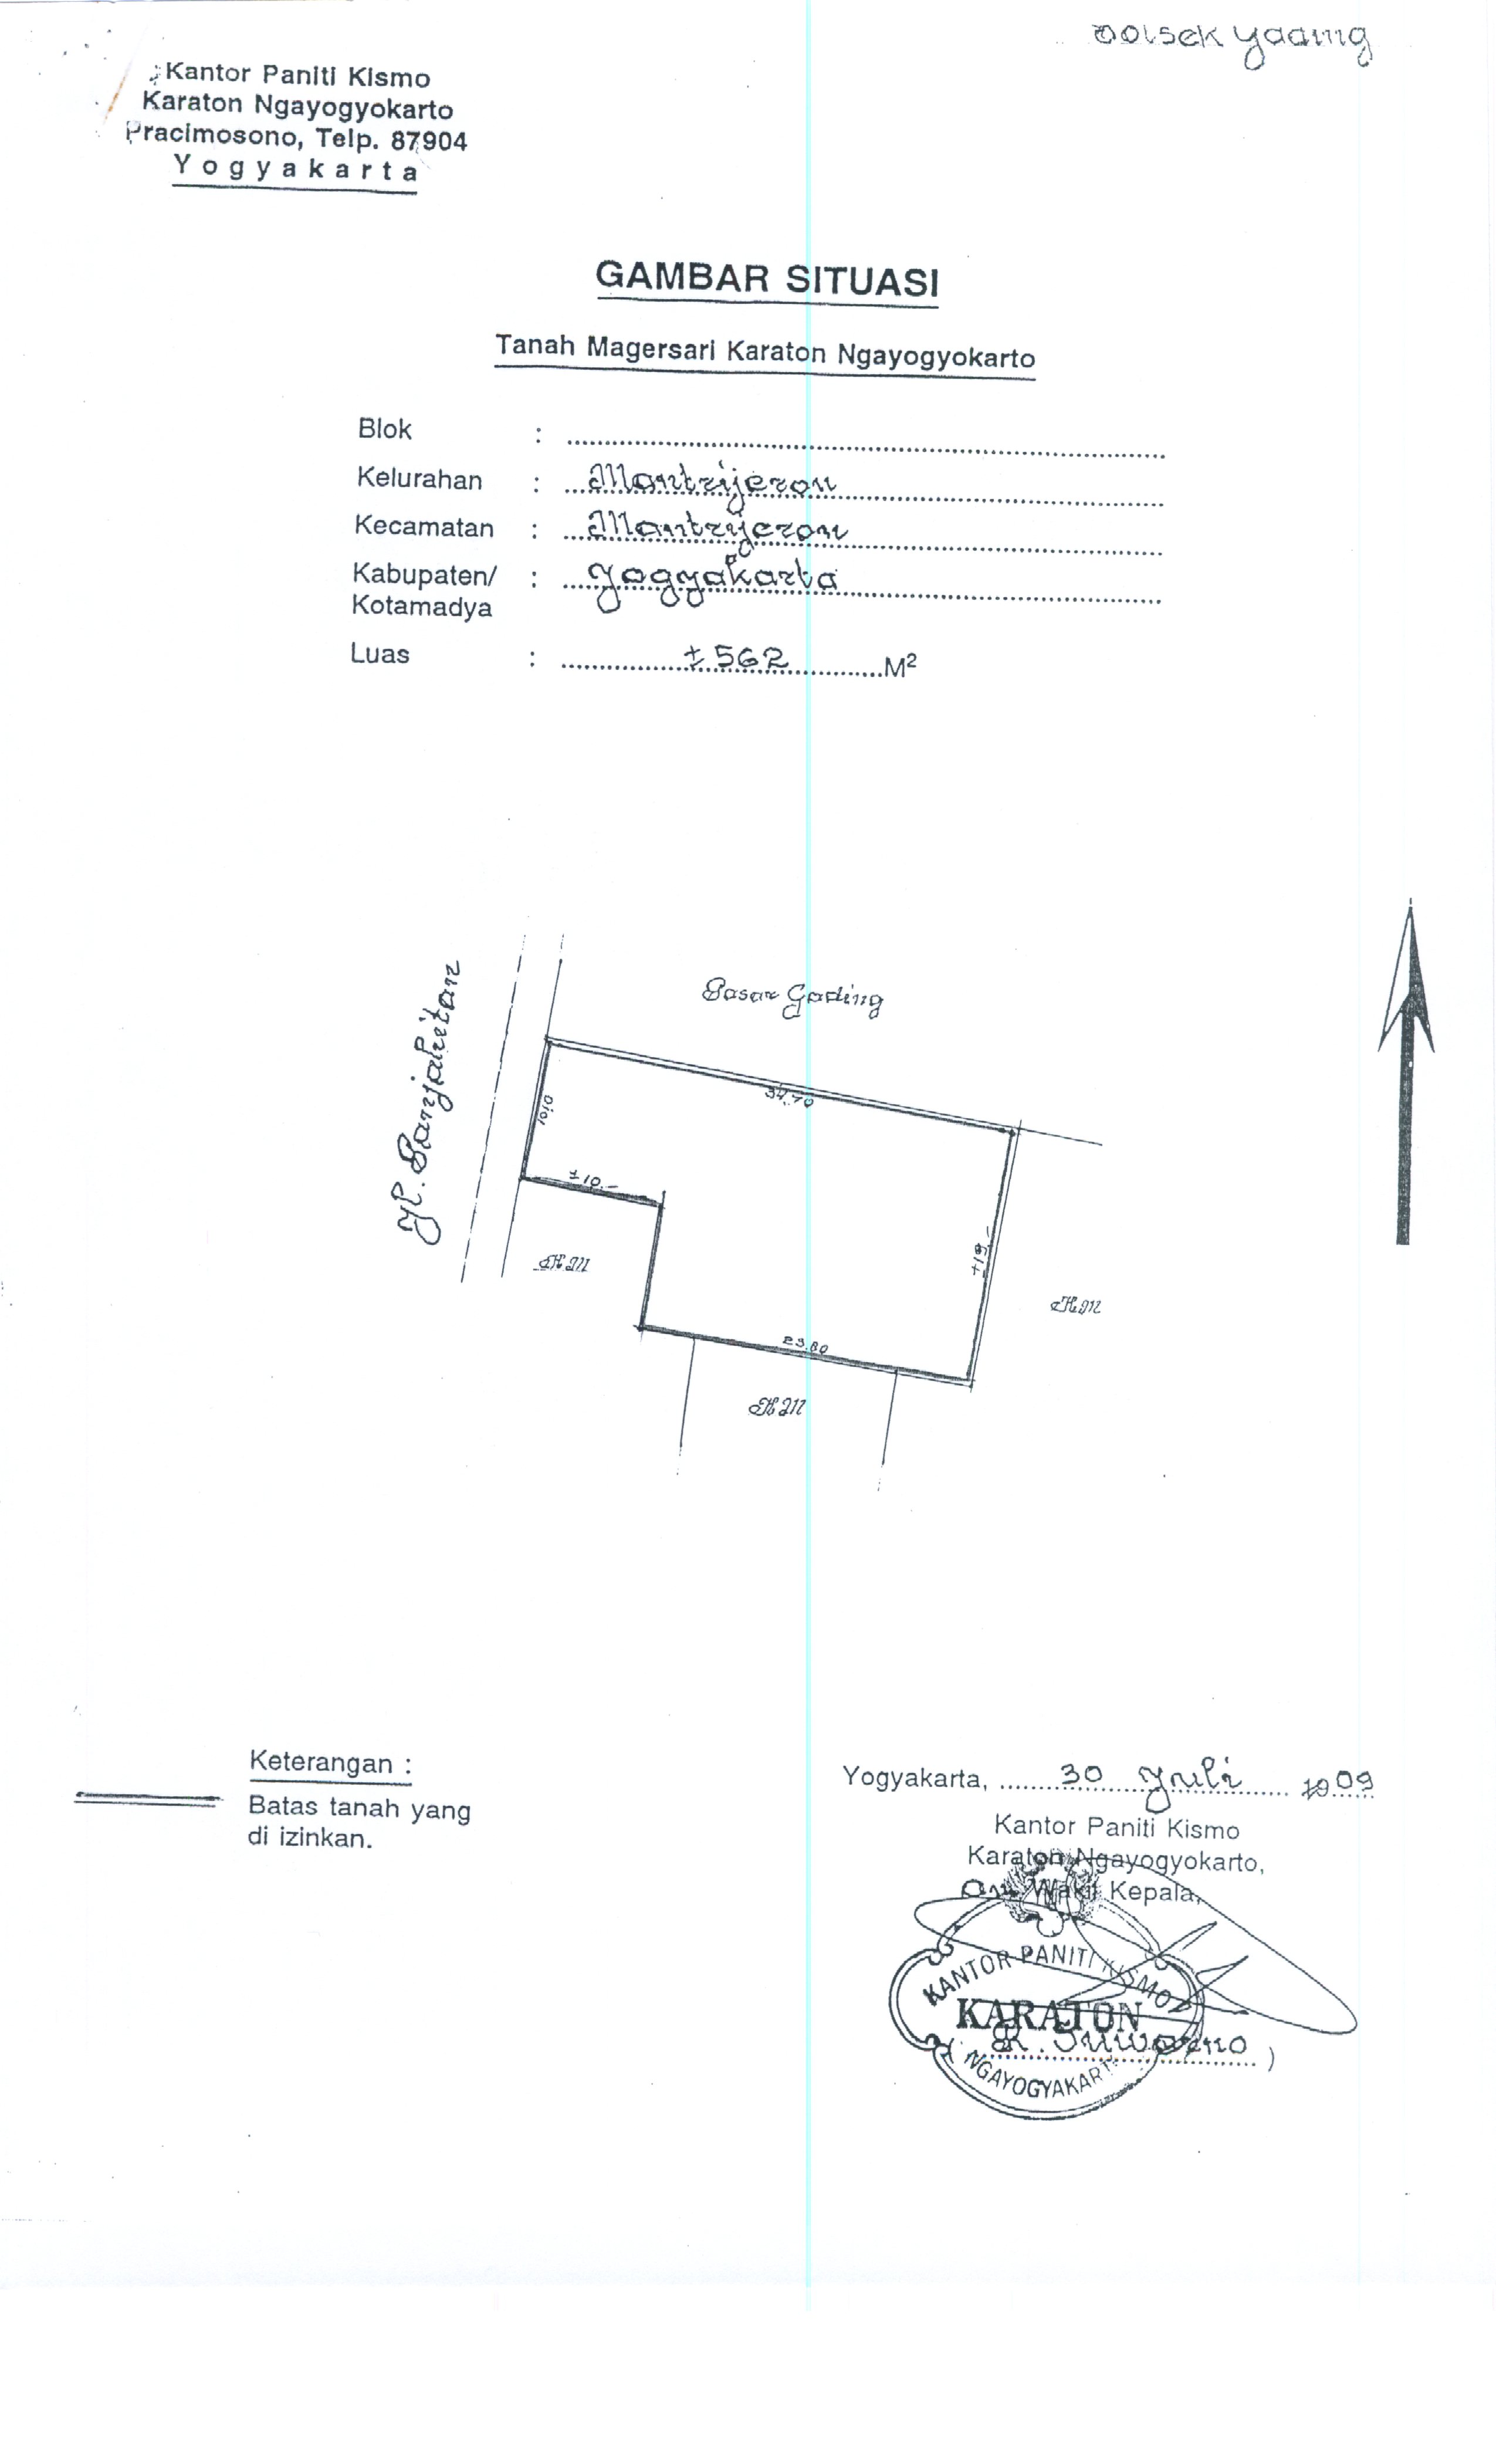 Kantor Paniti Kismo
Karaton Ngayogyokarto
Pracimosono, Telp. 87904
Yogyakarta
GAMBAR SITUASI
Tanah Magersari Karaton Ngayogyokarto
Blok :
Kelurahan : Mantrijeron
Kecamatan : Mantrijeron
Kabupaten/ : Yogyakarta
Kotamadya
Luas : ± 562 M²
Pasar Gading
Jl. Panjaitan
34,70
1010
±10.-
±19.-
HM
HM
23,80
HM
Keterangan :
Batas tanah yang
di izinkan.
Yogyakarta, 30 Juli 2009
Kantor Paniti Kismo
Karaton Ngayogyokarto,
An. Wakil Kepala,
KANTOR PANITI KISMO
KARATON
R. Suwarno )
NGAYOGYAKART